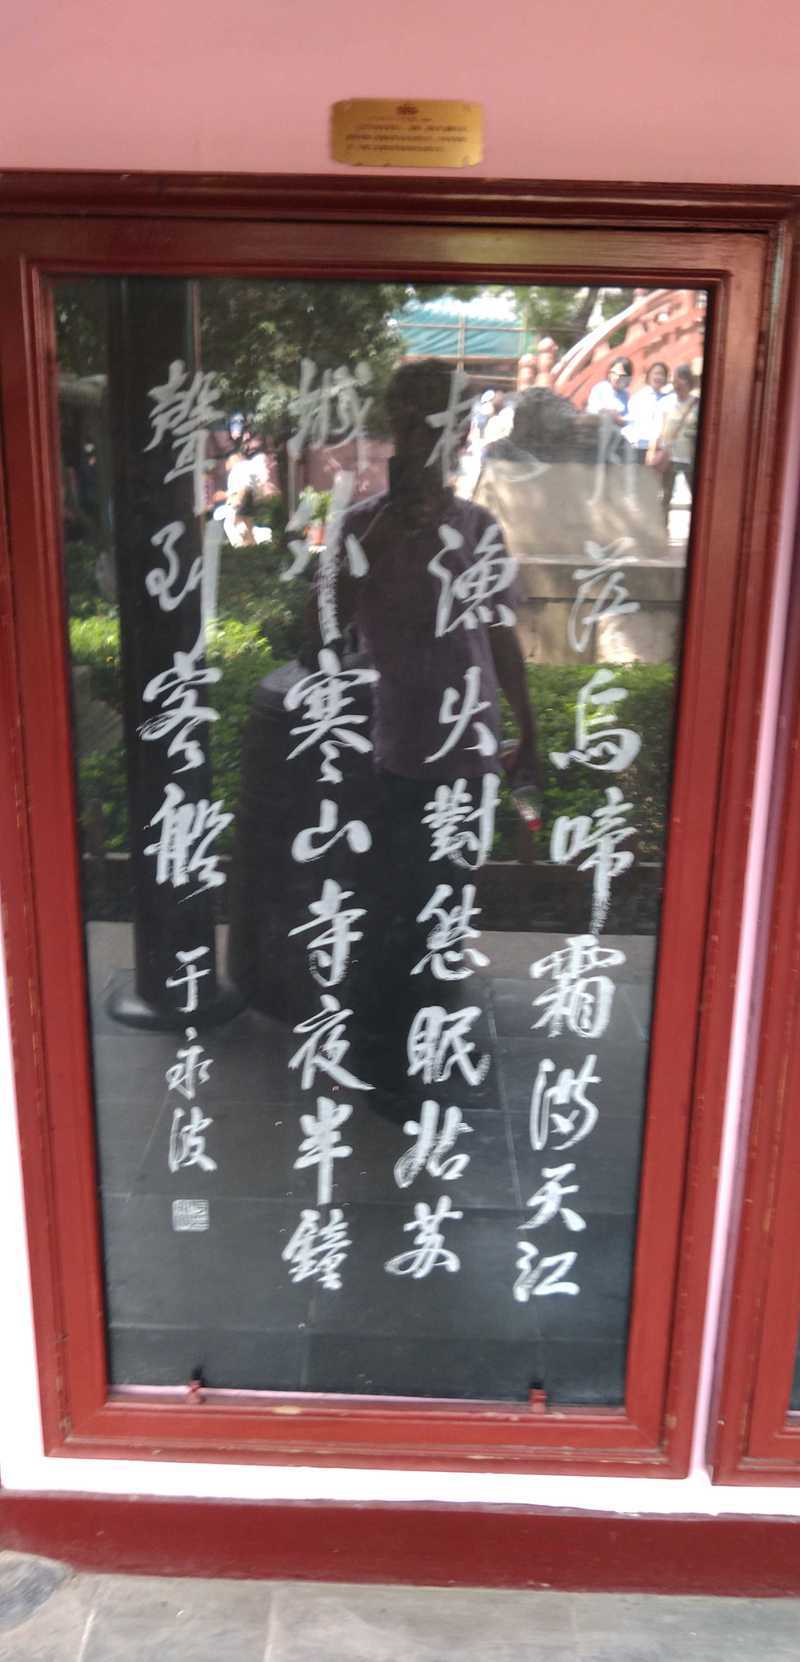 月落烏啼霜满天江
楓漁火對愁眠姑苏
城外寒山寺夜半鐘
聲到客船 于永波